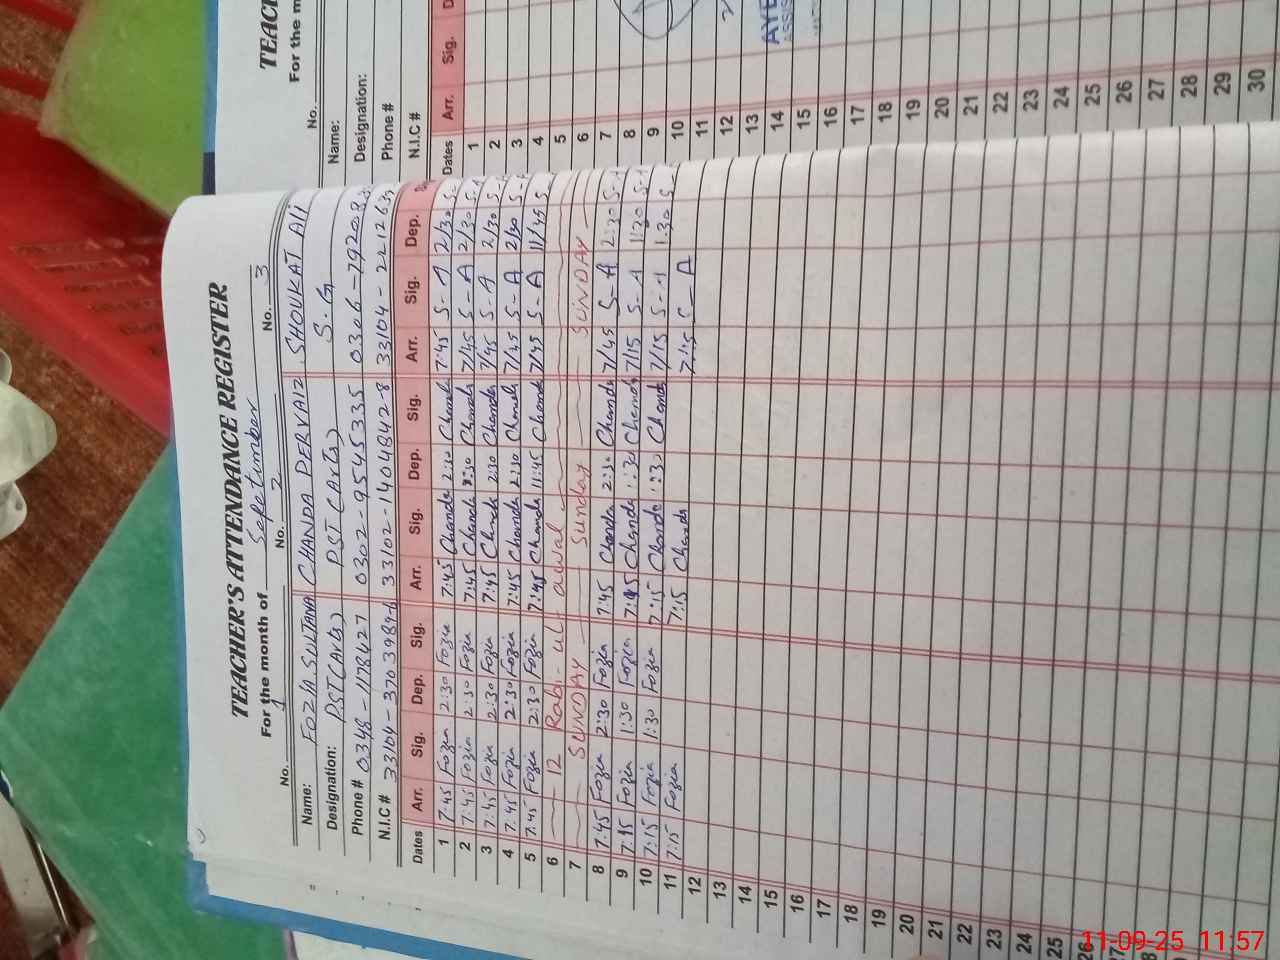 TEACHER'S ATTENDANCE REGISTER
For the month of Sepetimber
No. 1 No. 2 No. 3
Name: FOZIA SULTANA CHANDA PERVAIZ SHOUKAT ALI
Designation: PST (Avts) PST (Avts) S.G
Phone # 0348-1178427 0302-9545335 0306-79208
N.I.C # 33104-3703989-6 33102-1404842-8 33104-2212633
Dates Arr. Sig. Dep. Sig. Arr. Sig. Dep. Sig. Arr. Sig. Dep.
1 7:45 Fozia 2:30 Fozia 7:45 Chanda 2:30 Chanda 7:45 S-A 2/30
2 7:45 Fozia 2:30 Fozia 7:45 Chanda 2:30 Chanda 7/45 S-A 2/30
3 7:45 Fozia 2:30 Fozia 7:45 Chanda 2:30 Chanda 7/45 S-A 2/30
4 7:45 Fozia 2:30 Fozia 7:45 Chanda 2:30 Chanda 7/45 S-A 2/30
5 7:45 Fozia 2:30 Fozia 7:45 Chanda 11:45 Chanda 7/45 S-A 11/45
6 12 Rabi-ul awal
7 SUNDAY Sunday SUNDAY
8 7:45 Fozia 2:30 Fozia 7:45 Chanda 2:30 Chanda 7/45 S-A 2:30
9 7:15 Fozia 1:30 Fozia 7:15 Chanda 1:30 Chanda 7/15 S-A 1:30
10 7:15 Fozia 1:30 Fozia 7:15 Chanda 1:30 Chanda 7/15 S-A 1:30
11 7:15 Fozia 7:15 Chanda 7:15 S-A
12
13
14
15
16
17
18
19
20
21
22
23
24
25
26
27
TEACH
For the m
No.
Name:
Designation:
Phone #
N.I.C #
Dates Arr. Sig.
1
2
3
4
5
6
7
8
9
10
11
12
13
14
15
16
17
18
19
20
21
22
23
24
25
26
27
28
29
30
AYE
ASSIS
11-09-25 11:57